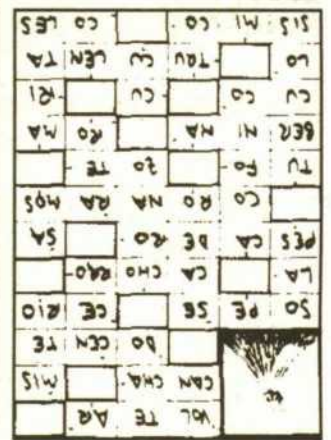 VOL TE AR
CAN CHA MIS
DO CEN TE
SO PE SE CE RIO
LA CA CHO RRO
PES CA DE RO SA
CO RO NA RA MOS
TU FO ZO TE
BER NI NA RO MA
CU CO CU RI
LO TRU CU LEN TA
SIS MI CO CO LES